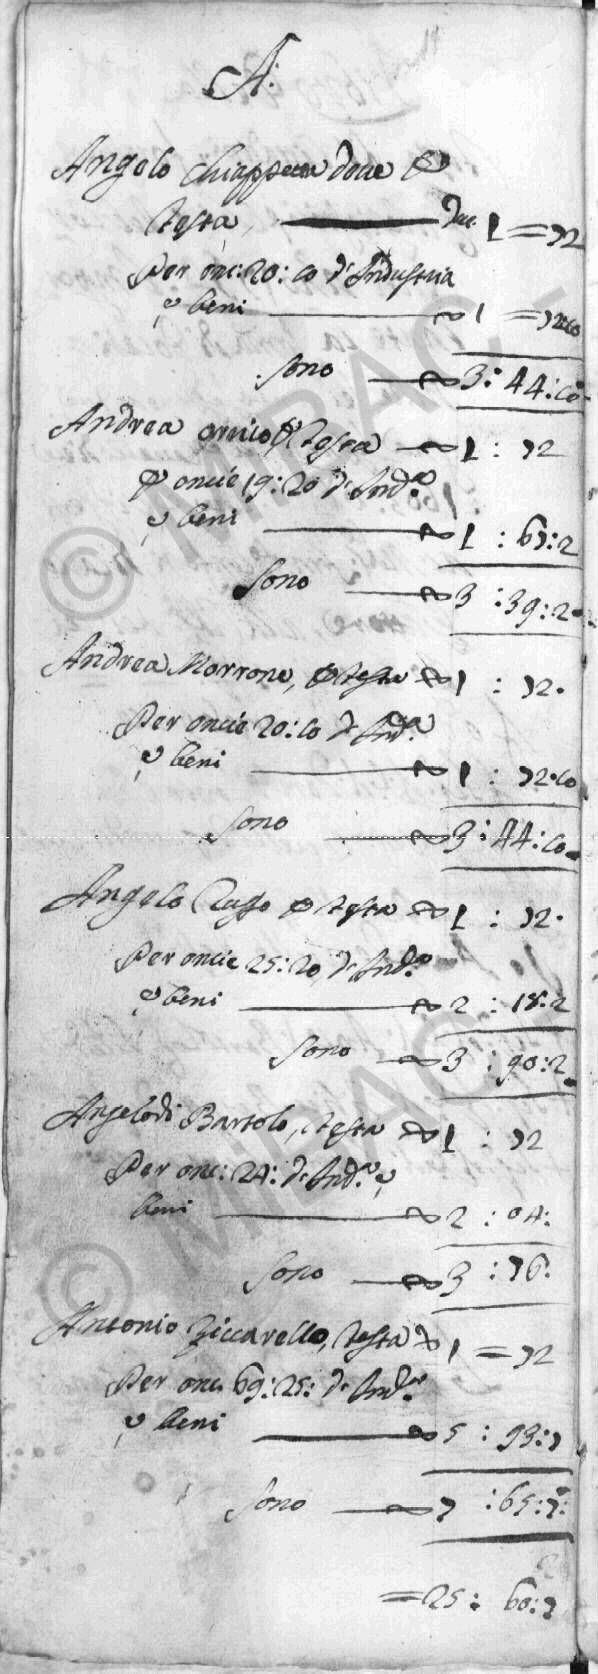 A:
Angelo Chiappetta deve p
testa, duc. 1 = 72
Per onc: 20: 10 d'Industria
e beni 1 = 72:10
Sono 3: 44: 10
Andrea p testa 1 : 72
p oncie 19: 20 d'Ind.a
e beni 1 : 67:2
Sono 3 :39:2
Andrea Morrone, p testa 1 : 72.
Per oncie 20: 10 d'Ind.a
e beni 1 : 72.10
Sono 3: 44: 10
Angelo Russo p testa 1 : 72.
Per oncie 25: 20, d'Ind.a
e beni 2 : 18:2
Sono 3 : 90:2
Angelo di Bartolo, testa 1 : 72
Per onc: 24: d'Ind.a e
beni 2 : 04:
Sono 3 : 76.
Antonio Ziccarello, testa 1 = 72
Per onc. 69: 25: d'Ind.a
e beni 5 : 93:7
Sono 7 : 65:7:
= 25: 60:7
© MBAC -
© MBAC -